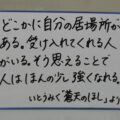 どこかに自分の居場所が
ある。受け入れてくれる人
がいる。そう思えることで
人はほんの少し強くなれる。
いとうみく「蒼天のほし」より